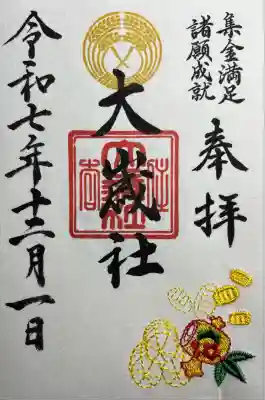 集金満足
諸願成就
奉拝
大歳社
令和七年十二月一日